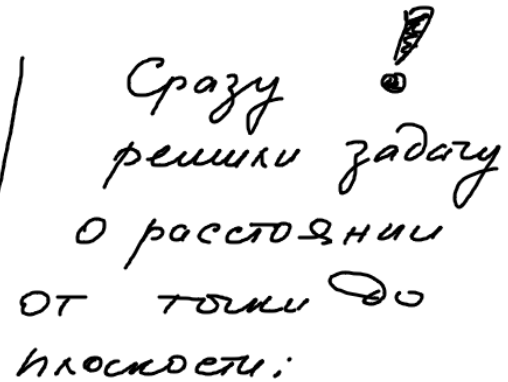 Сразу !
решили задачу
о расстоянии
от точки до
плоскости: